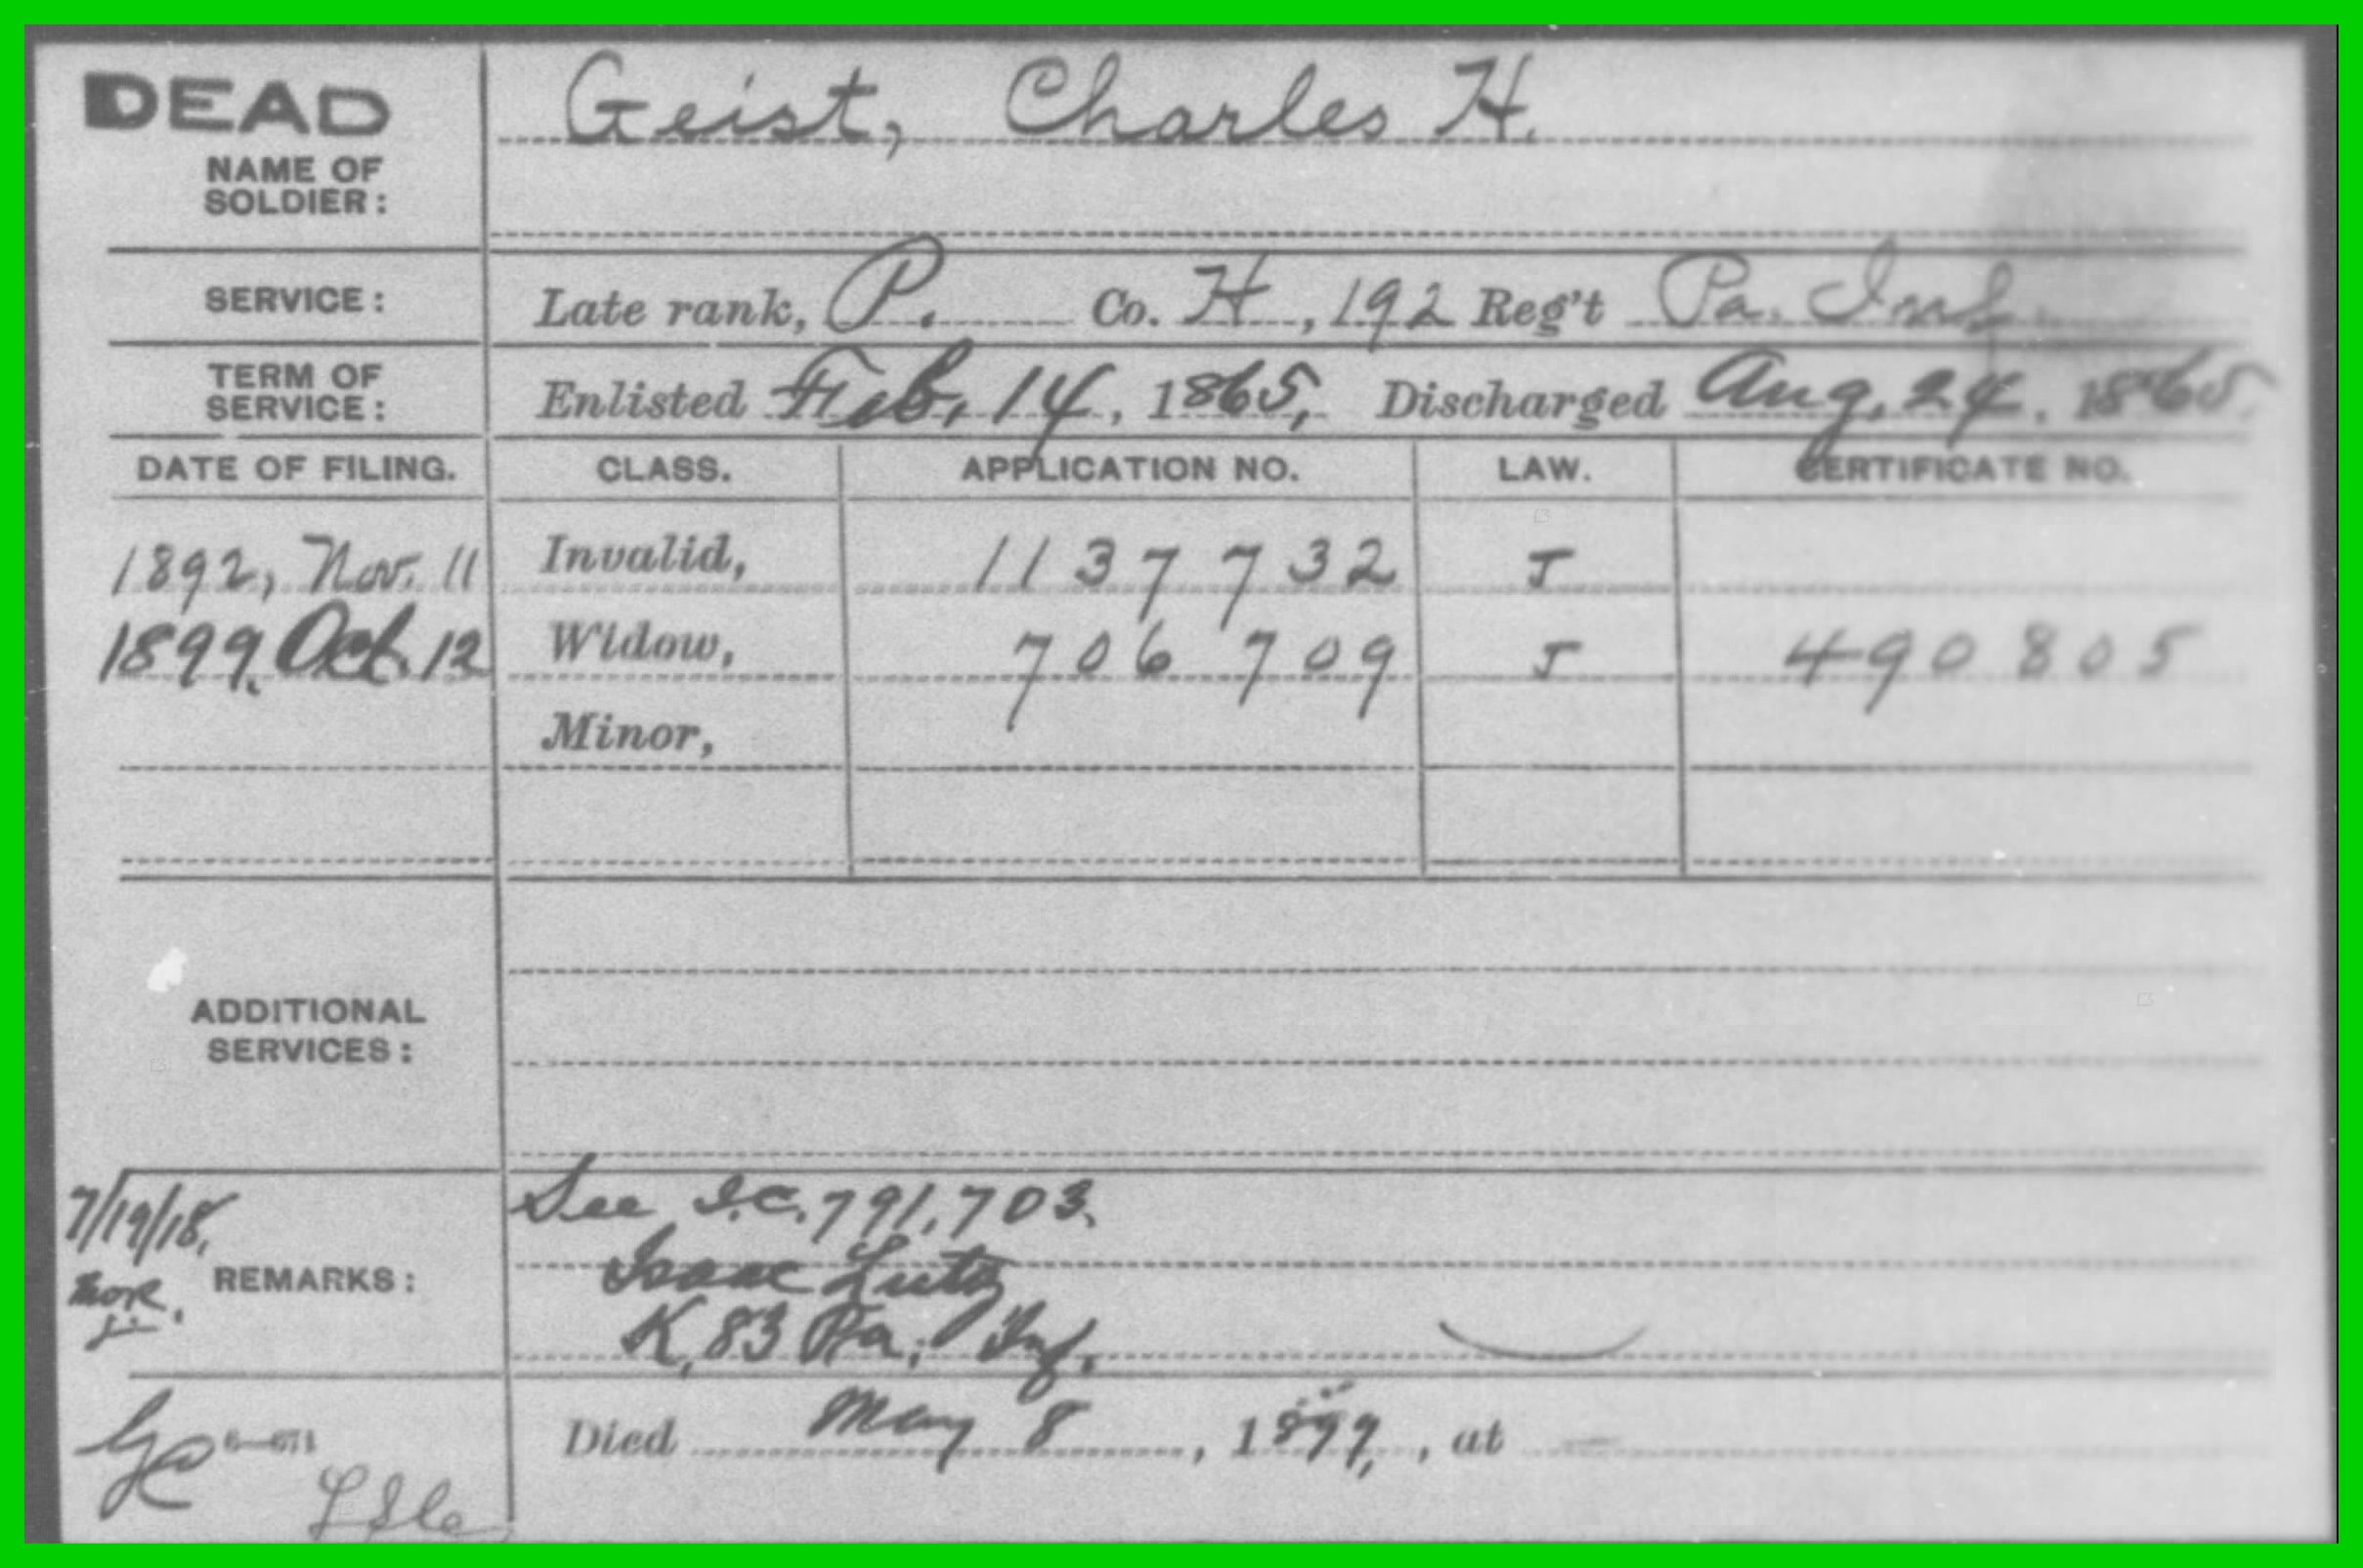 DEAD
Geist, Charles H.
NAME OF
SOLDIER:
SERVICE: Late rank, P. Co. H, 192 Reg't Pa. Inf.
TERM OF
SERVICE: Enlisted Feb. 14, 1865, Discharged Aug. 24, 1865.
DATE OF FILING. CLASS. APPLICATION NO. LAW. CERTIFICATE NO.
1892, Nov. 11 Invalid, 1137732 J
1899, Oct. 12 Widow, 706709 J 490805
Minor,
ADDITIONAL
SERVICES:
7/19/18. See I.C. 791,703.
REMARKS: Isaac Lutz
K, 83 Pa. Inf.
6—671 Died May 8, 1899, at